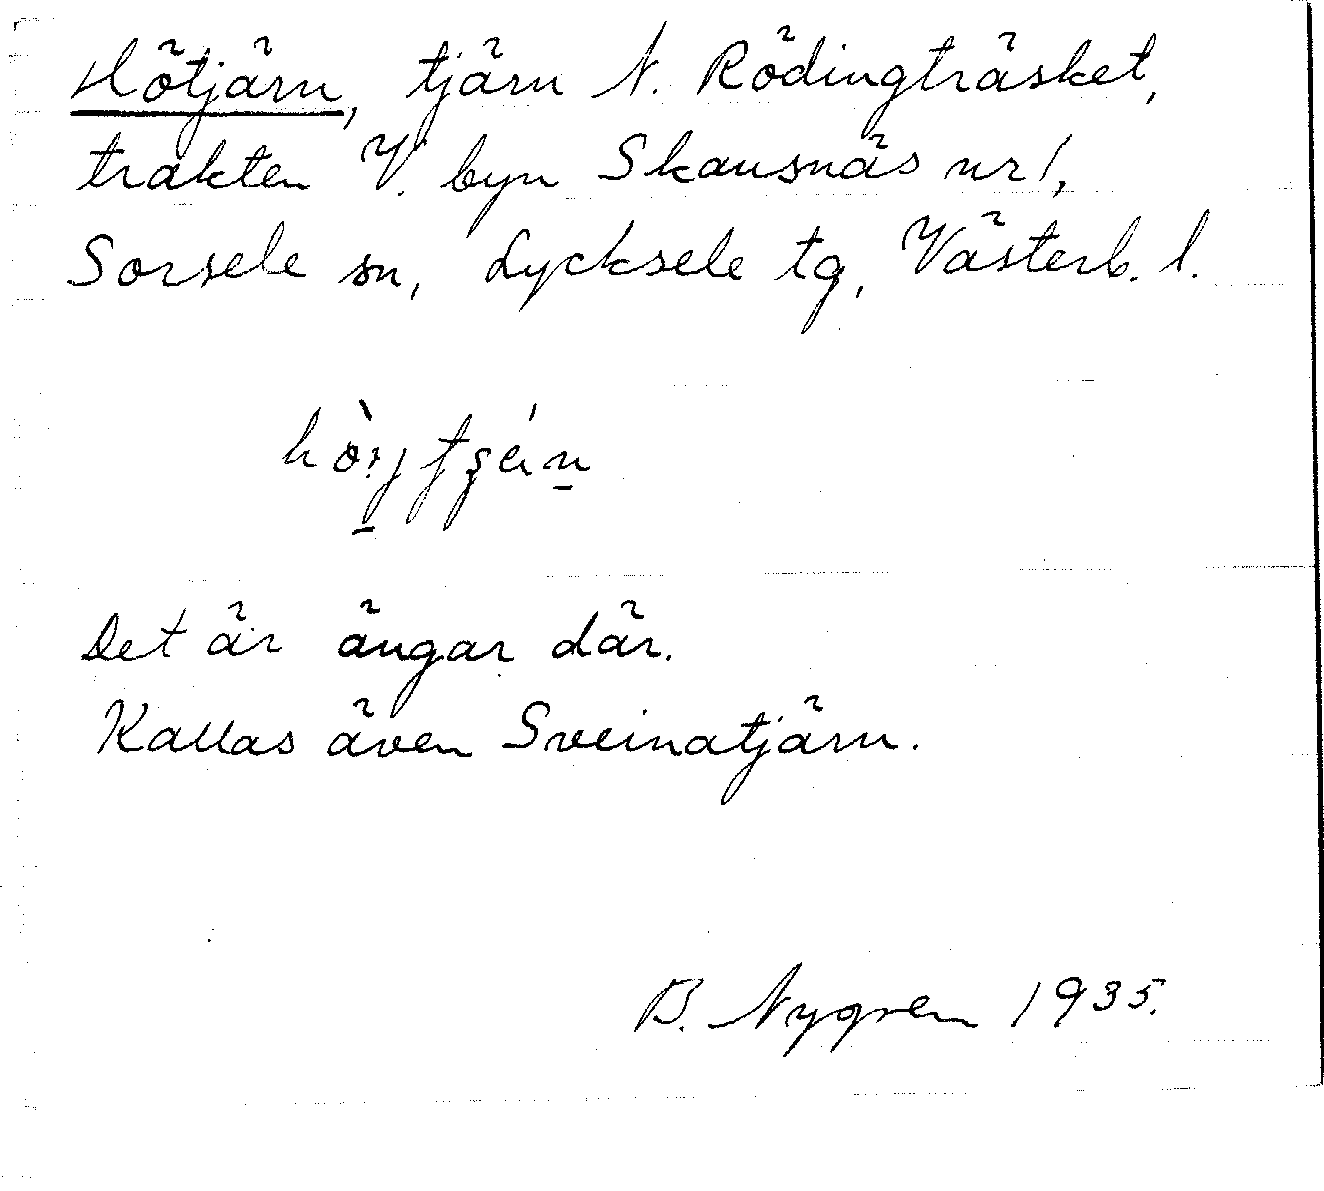 Hötjärn, tjärn N. Rödingträsket,
trakten V. byn Skansnäs nr 1,
Sorsele sn, Lycksele tg, Västerb. l.
Det är ängar där.
Kallas även Sveinatjärn.
B. Nygren 1935.